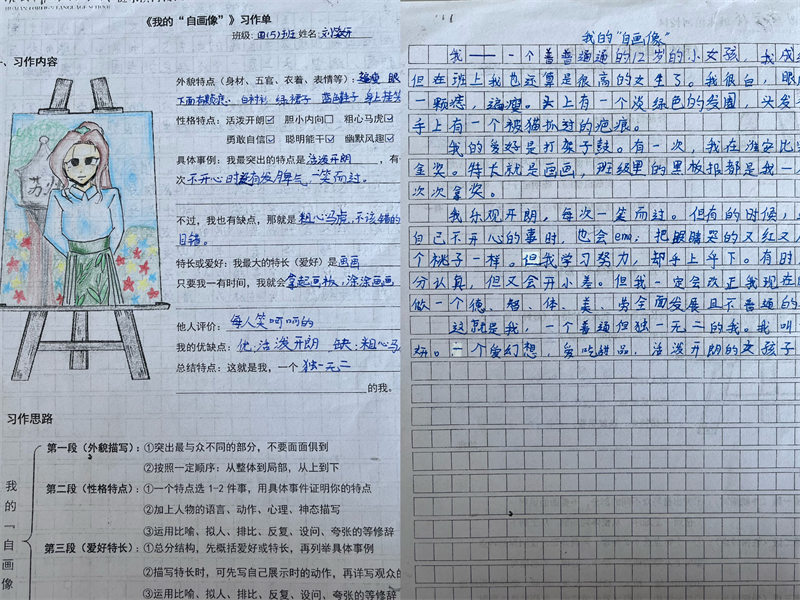 《我的“自画像”》习作单
班级: 四(5)班 姓名:
一、习作内容
外貌特点（身材、五官、衣着、表情等）:
下面有颗痣 白衬衫 绿裙子 蓝色鞋子
性格特点: 活泼开朗☑ 胆小内向☐ 粗心马虎☑
勇敢自信☑ 聪明能干☑ 幽默风趣☑
具体事例: 我最突出的特点是活泼开朗，有
次不开心时没有发脾气，一笑而过。
不过，我也有缺点，那就是粗心马虎，不该错的
目错。
特长或爱好: 我最大的特长（爱好）是画画
只要我一有时间，我就会拿起画板，涂涂画画
他人评价: 每人笑呵呵的
我的优缺点: 优:活泼开朗 缺:粗心马
总结特点: 这就是我，一个独一无二
的我。
苏
习作思路
我的「自画像
第一段（外貌描写）: ①突出最与众不同的部分，不要面面俱到
②按照一定顺序: 从整体到局部，从上到下
第二段（性格特点）: ①一个特点选1-2件事，用具体事件证明你的特点
②加上人物的语言、动作、心理、神态描写
③运用比喻、拟人、排比、反复、设问、夸张的等修辞
第三段（爱好特长）: ①总分结构，先概括爱好或特长，再列举具体事例
②描写特长时，可先写自己展示时的动作，再详写观众的
③运用比喻、拟人、排比、反复、设问、夸张的等修辞
我的“自画像”
我——一个普普通通的12岁的小女孩，我成
但在班上我也还算是很高的女生了。我很白，眼
一颗痣，偏瘦。头上有一个淡绿色的发圈，头发
手上有一个被猫抓过的疤痕。
我的爱好是打架子鼓。有一次，我在淮安比
金奖。特长就是画画，班级里的黑板报都是我一
次次拿奖。
我乐观开朗，每次一笑而过。但有的时候，
自己不开心的事时，也会emo；把眼睛哭的又红又
个桃子一样。但我学习努力，却手上手下。有时
分认真，但又会开小差。但我一定会改正我现在
做一个德、智、体、美、劳全面发展且不普通的
这就是我，一个普通但独一无二的我。我叫
妍。一个爱幻想，爱吃甜品，活泼开朗的女孩子